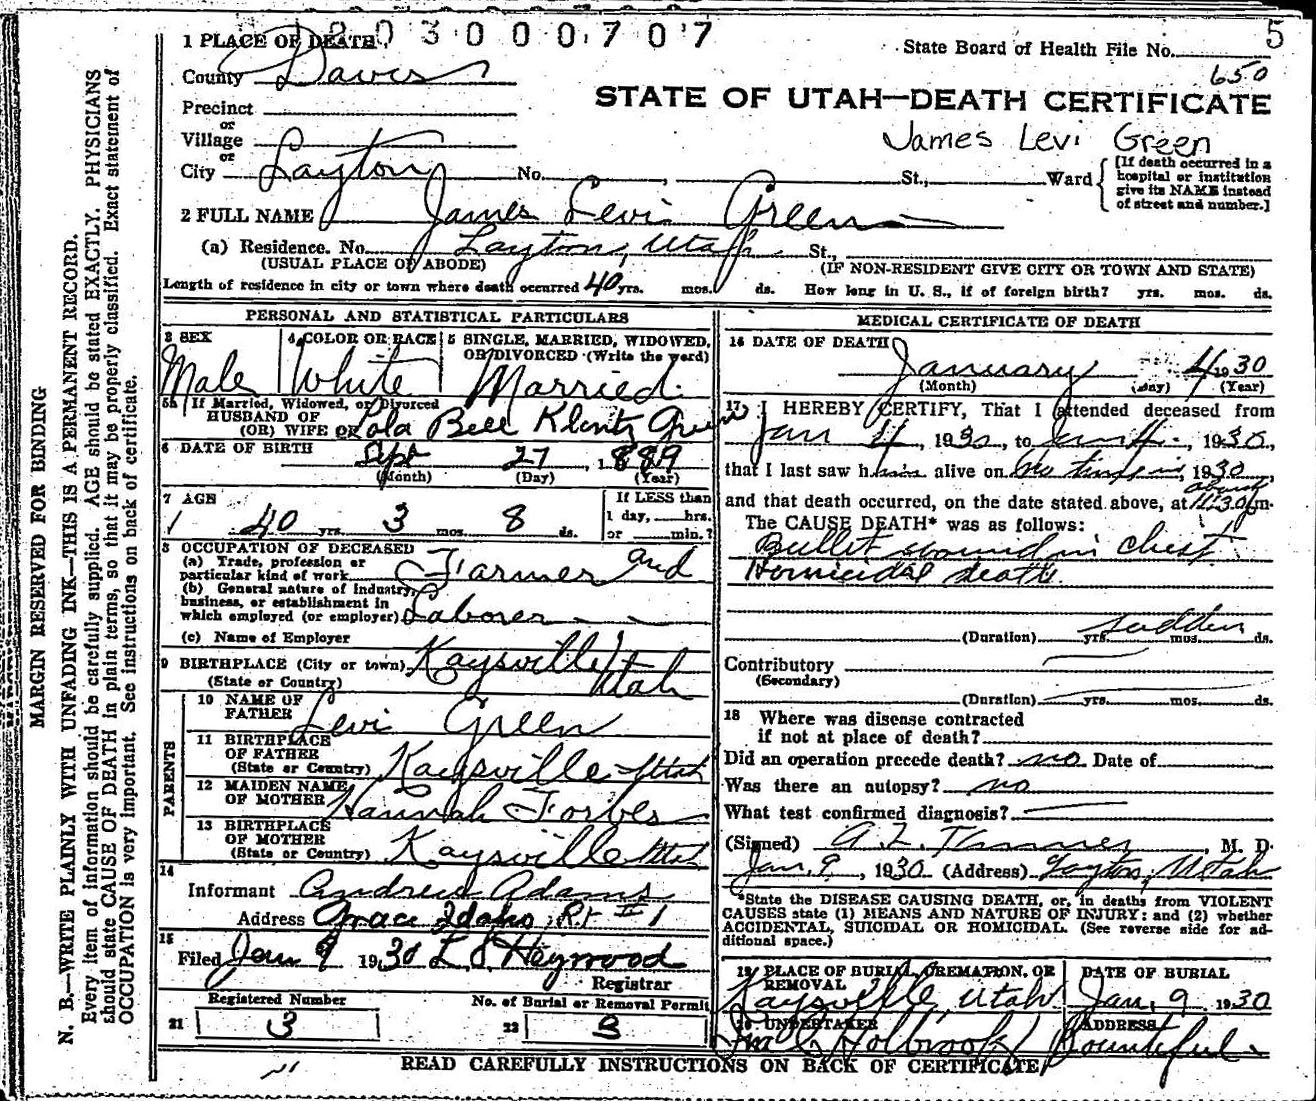 1 PLACE OF DEATH 1203000707
State Board of Health File No. 5
650
County Davis
STATE OF UTAH—DEATH CERTIFICATE
Precinct
or
Village
James Levi Green
or
City Layton No. , St., Ward { [If death occurred in a hospital or institution give its NAME instead of street and number.]
2 FULL NAME James Levi Green
(a) Residence. No. Layton, Utah St.,
(USUAL PLACE OF ABODE) (IF NON-RESIDENT GIVE CITY OR TOWN AND STATE)
Length of residence in city or town where death occurred 40 yrs. mos. ds. How long in U. S., if of foreign birth? yrs. mos. ds.
PERSONAL AND STATISTICAL PARTICULARS
3 SEX
Male
4 COLOR OR RACE
White
5 SINGLE, MARRIED, WIDOWED, OR DIVORCED (Write the word)
Married
5a If Married, Widowed, or Divorced
HUSBAND OF
(OR) WIFE OF Lola Bell Klintz Green
6 DATE OF BIRTH
Sept 27, 1889
(Month) (Day) (Year)
7 AGE
40 yrs. 3 mos. 8 ds.
If LESS than
1 day, hrs.
or min.?
8 OCCUPATION OF DECEASED
(a) Trade, profession or
particular kind of work Farmer and
(b) General nature of industry,
business, or establishment in
which employed (or employer) Laborer
(c) Name of Employer
9 BIRTHPLACE (City or town) Kaysville
(State or Country) Utah
PARENTS
10 NAME OF
FATHER Levi Green
11 BIRTHPLACE
OF FATHER
(State or Country) Kaysville Utah
12 MAIDEN NAME
OF MOTHER Hannah Forbes
13 BIRTHPLACE
OF MOTHER
(State or Country) Kaysville Utah
14
Informant Andrew Adams
Address Grace Idaho, Rt # 1
15
Filed Jan 9 1930 L S Heywood
Registrar
Registered Number
21 3
No. of Burial or Removal Permit
22 3
MEDICAL CERTIFICATE OF DEATH
16 DATE OF DEATH
January 4 1930
(Month) (Day) (Year)
17 I HEREBY CERTIFY, That I attended deceased from
Jan 4, 1930, to Jan 4, 1930,
that I last saw him alive on no time in, 1930
and that death occurred, on the date stated above, at about 11:30 m.
The CAUSE DEATH* was as follows:
Bullet wound in chest
Homicidal death
sudden
(Duration) yrs. mos. ds.
Contributory
(Secondary)
(Duration) yrs. mos. ds.
18 Where was disease contracted
if not at place of death?
Did an operation precede death? no Date of
Was there an autopsy? no
What test confirmed diagnosis?
(Signed) A. Z. Tanner, M. D.
Jan. 9, 1930 (Address) Layton, Utah
*State the DISEASE CAUSING DEATH, or, in deaths from VIOLENT
CAUSES state (1) MEANS AND NATURE OF INJURY: and (2) whether
ACCIDENTAL, SUICIDAL OR HOMICIDAL. (See reverse side for ad-
ditional space.)
19 PLACE OF BURIAL, CREMATION, OR
REMOVAL
Kaysville, Utah
DATE OF BURIAL
Jan. 9 1930
20 UNDERTAKER
Holbrook
ADDRESS
Bountiful
READ CAREFULLY INSTRUCTIONS ON BACK OF CERTIFICATE
MARGIN RESERVED FOR BINDING
N. B.—WRITE PLAINLY WITH UNFADING INK—THIS IS A PERMANENT RECORD.
Every item of information should be carefully supplied. AGE should be stated EXACTLY. PHYSICIANS
should state CAUSE OF DEATH in plain terms, so that it may be properly classified. Exact statement of
OCCUPATION is very important. See instructions on back of certificate.